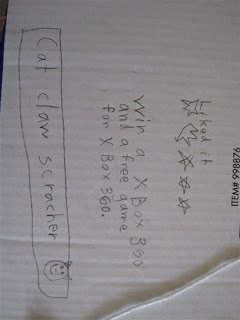 ITEM# 998876
Liked it
Win a X Box 360
and a free game
for X Box 360.
Cat claw scracher